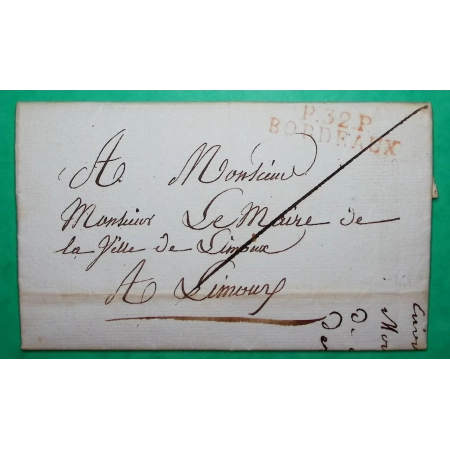 P.32.P
BORDEAUX
A Monsieur
Monsieur Le Maire de
la Ville de Limoux
A Limoux